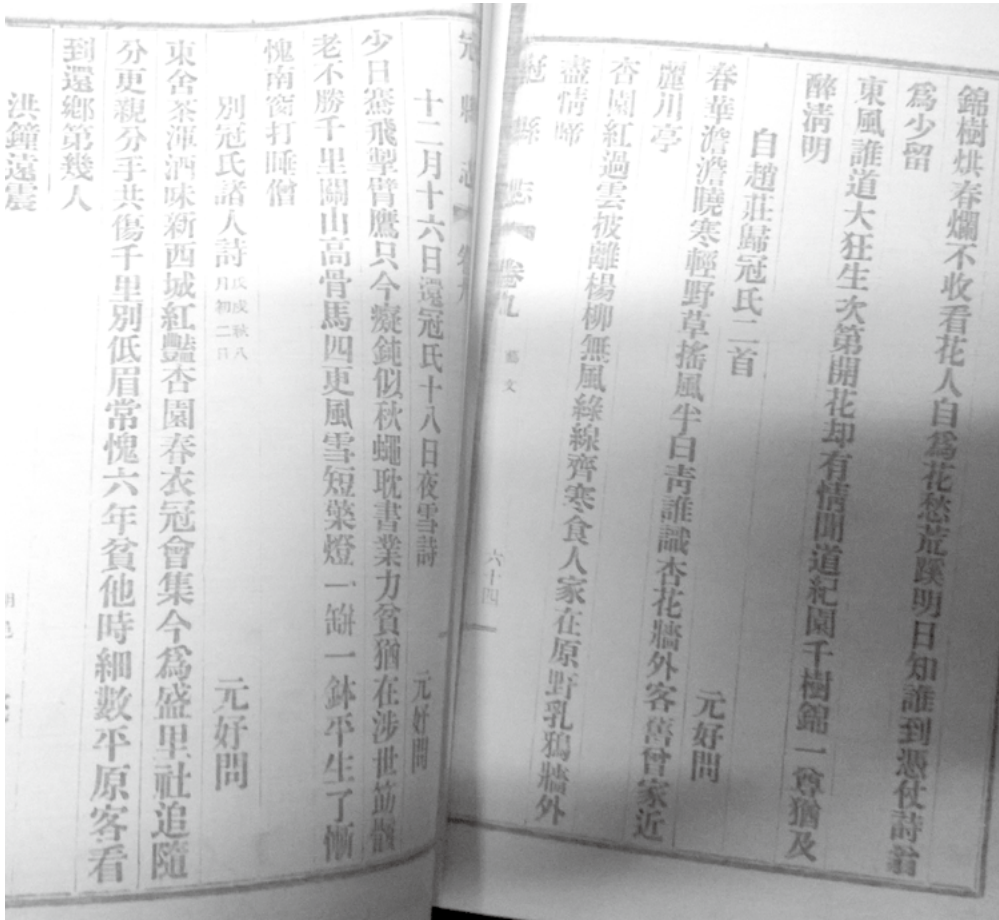 錦樹烘春爛不收看花人自爲花愁荒蹊明日知誰到憑仗詩翁
爲少留
東風誰道大狂生次第開花却有情聞道紀園千樹錦一尊猶及
醉淸明
自趙莊歸冠氏二首
元好問
春華澹澹曉寒輕野草搖風半白靑誰識杏花牆外客舊曾家近
麗川亭
杏園紅過雲被離楊柳無風綠線齊寒食人家在原野乳鴉牆外
盡情啼
冠縣志
卷九
藝文
六十四
冠縣志
卷九
十二月十六日還冠氏十八日夜雪詩
元好問
少日騫飛掣臂鷹只今癡鈍似秋蠅耽書業力貧猶在涉世筋骸
老不勝千里關山高骨馬四更風雪短檠燈一缾一鉢平生了慚
愧南窗打睡僧
別冠氏諸人詩
戊戌秋八
月初二日
元好問
東舍茶渾酒味新西城紅豔杏園春衣冠會集今爲盛里社追隨
分更親分手共傷千里別低眉常愧六年貧他時細數平原客看
到還鄉第幾人
洪鐘遠震